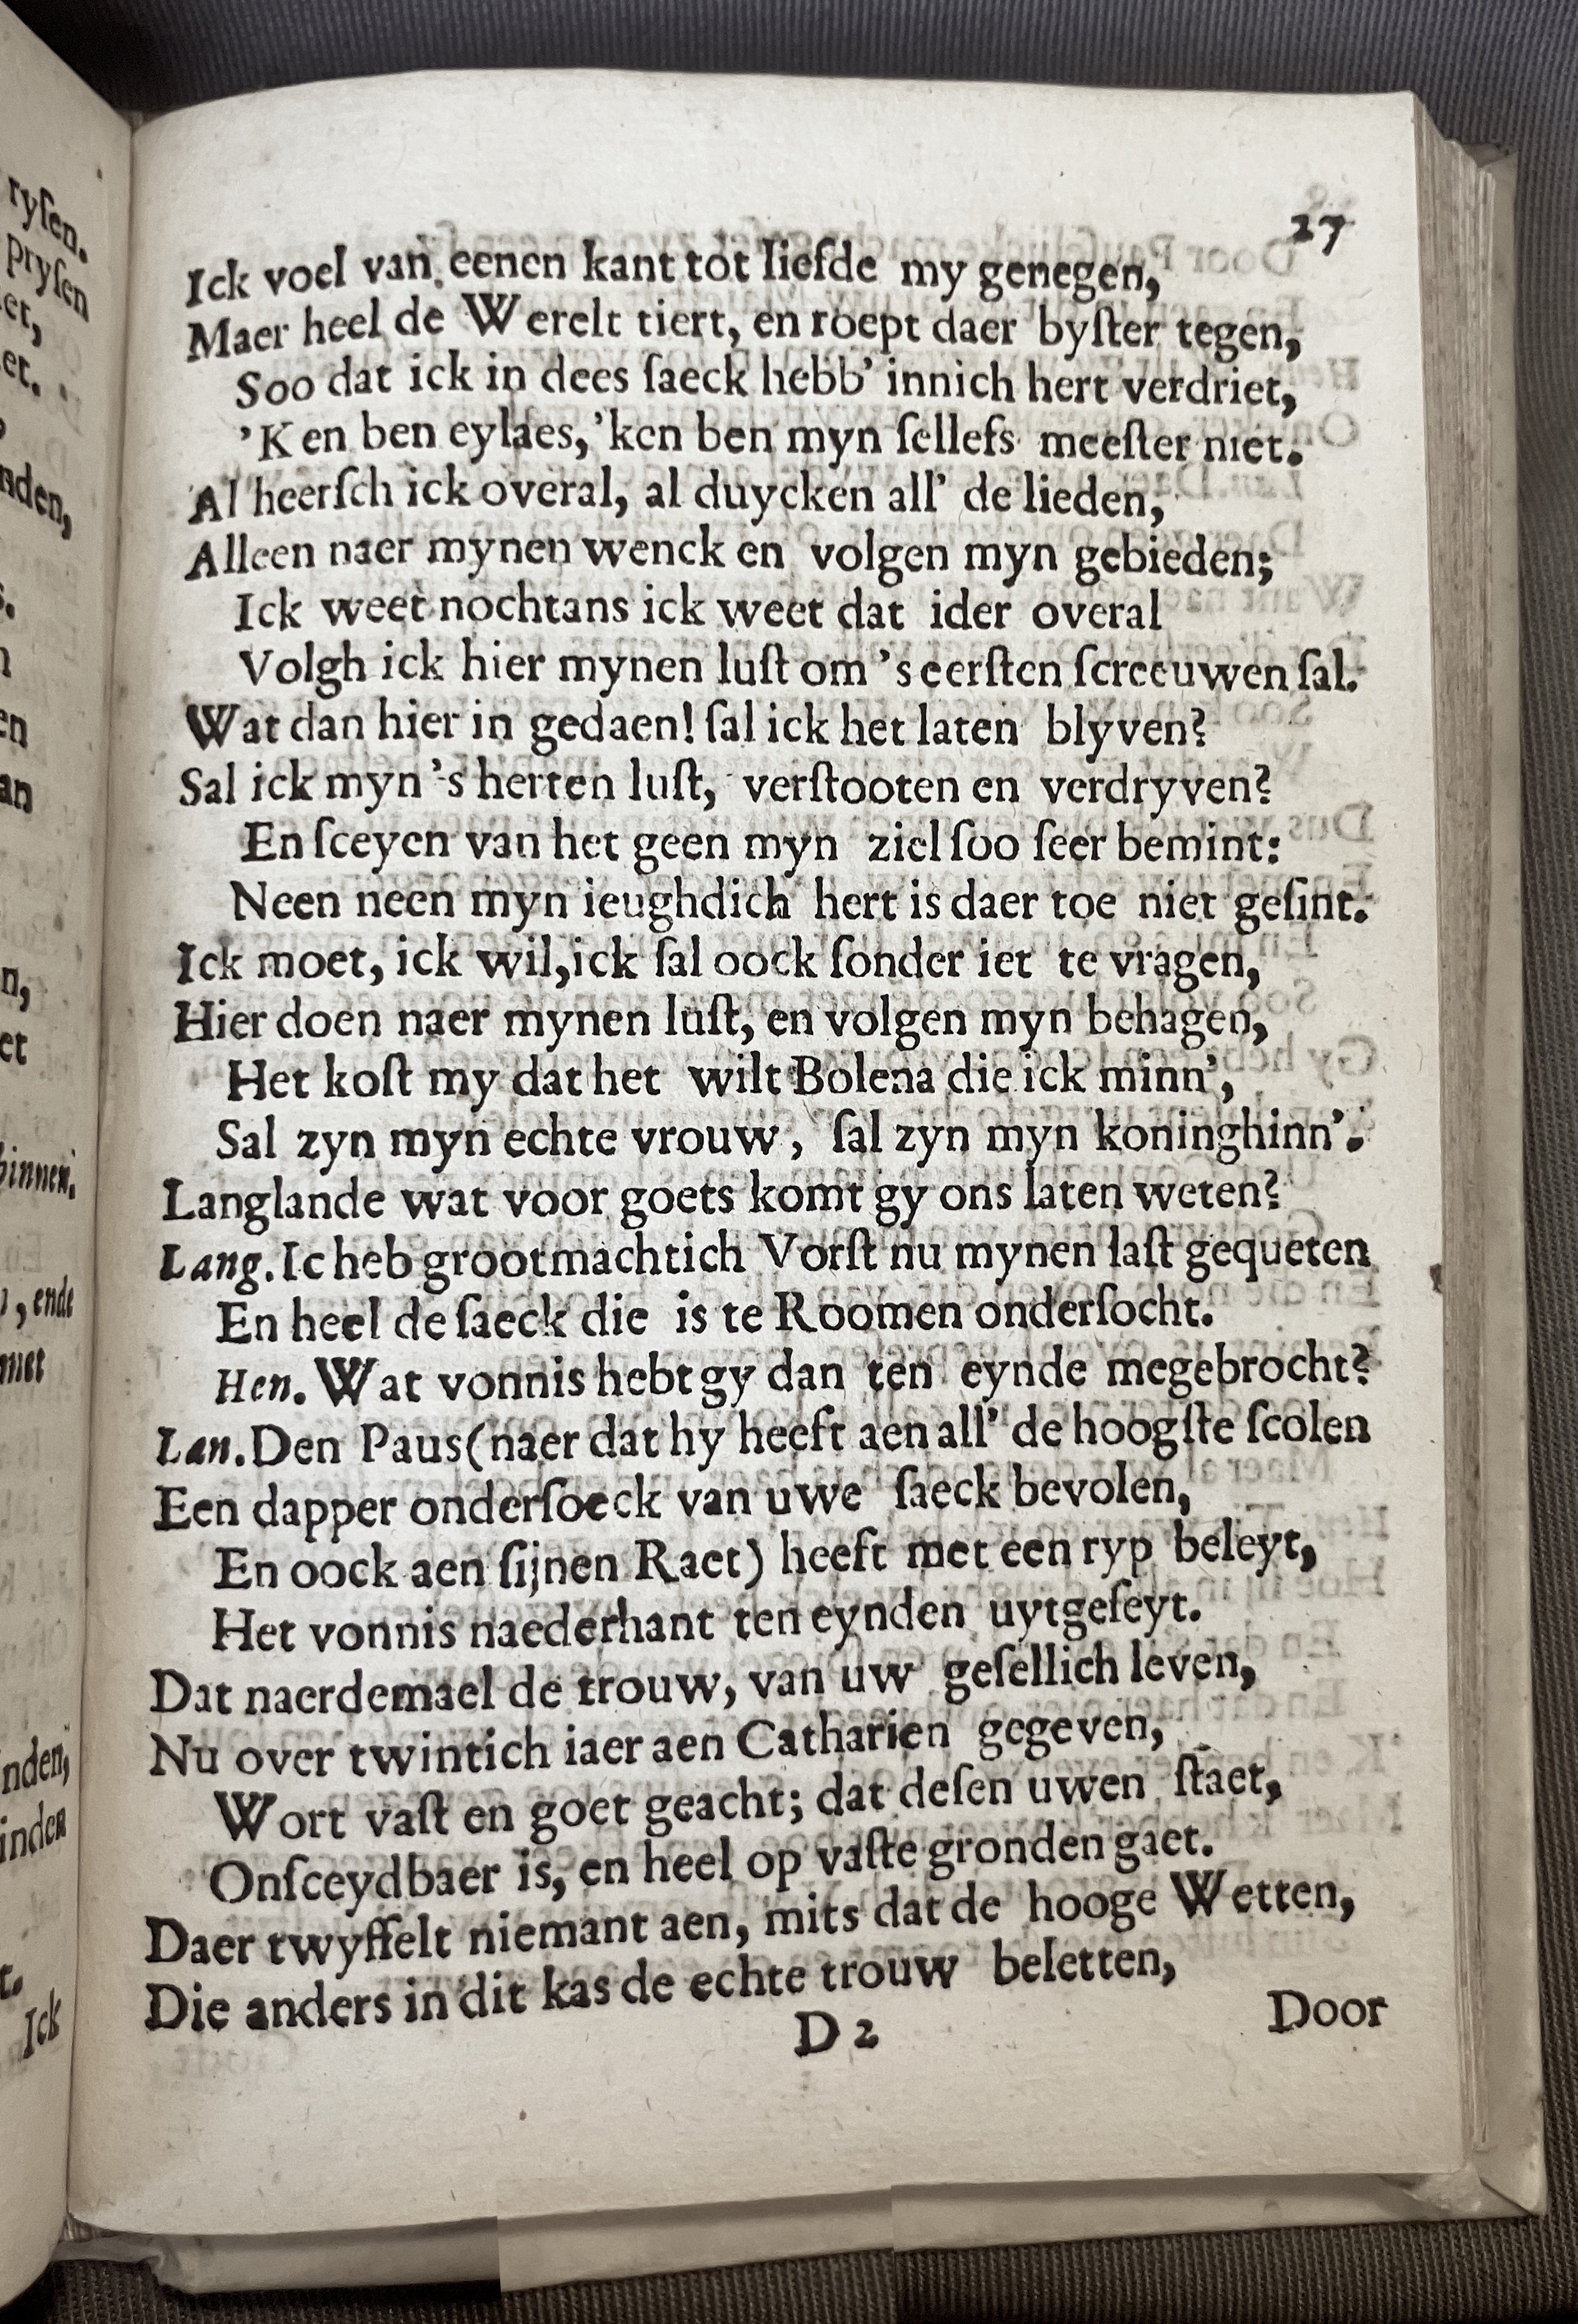 ryſen.
pryſen
et,
et.
nden,
en
an
n,
et
binnen.
, ende
met
nden,
inden
t.
Ick
27
Ick voel van eenen kant tot liefde my genegen,
Maer heel de Werelt tiert, en roept daer byſter tegen,
Soo dat ick in dees ſaeck hebb' innich hert verdriet,
'K en ben eylaes, 'ken ben myn ſellefs meeſter niet.
Al heerſch ick overal, al duycken all' de lieden,
Alleen naer mynen wenck en volgen myn gebieden;
Ick weet nochtans ick weet dat ider overal
Volgh ick hier mynen luſt om 's eerſten ſcreeuwen ſal.
Wat dan hier in gedaen! ſal ick het laten blyven?
Sal ick myn 's herten luſt, verſtooten en verdryven?
En ſceyen van het geen myn ziel ſoo ſeer bemint:
Neen neen myn ieughdich hert is daer toe niet geſint.
Ick moet, ick wil, ick ſal oock ſonder iet te vragen,
Hier doen naer mynen luſt, en volgen myn behagen,
Het koſt my dat het wilt Bolena die ick minn',
Sal zyn myn echte vrouw, ſal zyn myn koninghinn'.
Langlande wat voor goets komt gy ons laten weten?
Lang. Ic heb grootmachtich Vorſt nu mynen laſt gequeten
En heel de ſaeck die is te Roomen onderſocht.
Hen. Wat vonnis hebt gy dan ten eynde megebrocht?
Lan. Den Paus (naer dat hy heeft aen all' de hoogſte ſcolen
Een dapper onderſoeck van uwe ſaeck bevolen,
En oock aen ſijnen Raet) heeft met een ryp beleyt,
Het vonnis naederhant ten eynden uytgeſeyt.
Dat naerdemael de trouw, van uw geſellich leven,
Nu over twintich iaer aen Catharien gegeven,
Wort vaſt en goet geacht; dat deſen uwen ſtaet,
Onſceydbaer is, en heel op vaſte gronden gaet.
Daer twyffelt niemant aen, mits dat de hooge Wetten,
Die anders in dit kas de echte trouw beletten,
D 2
Door